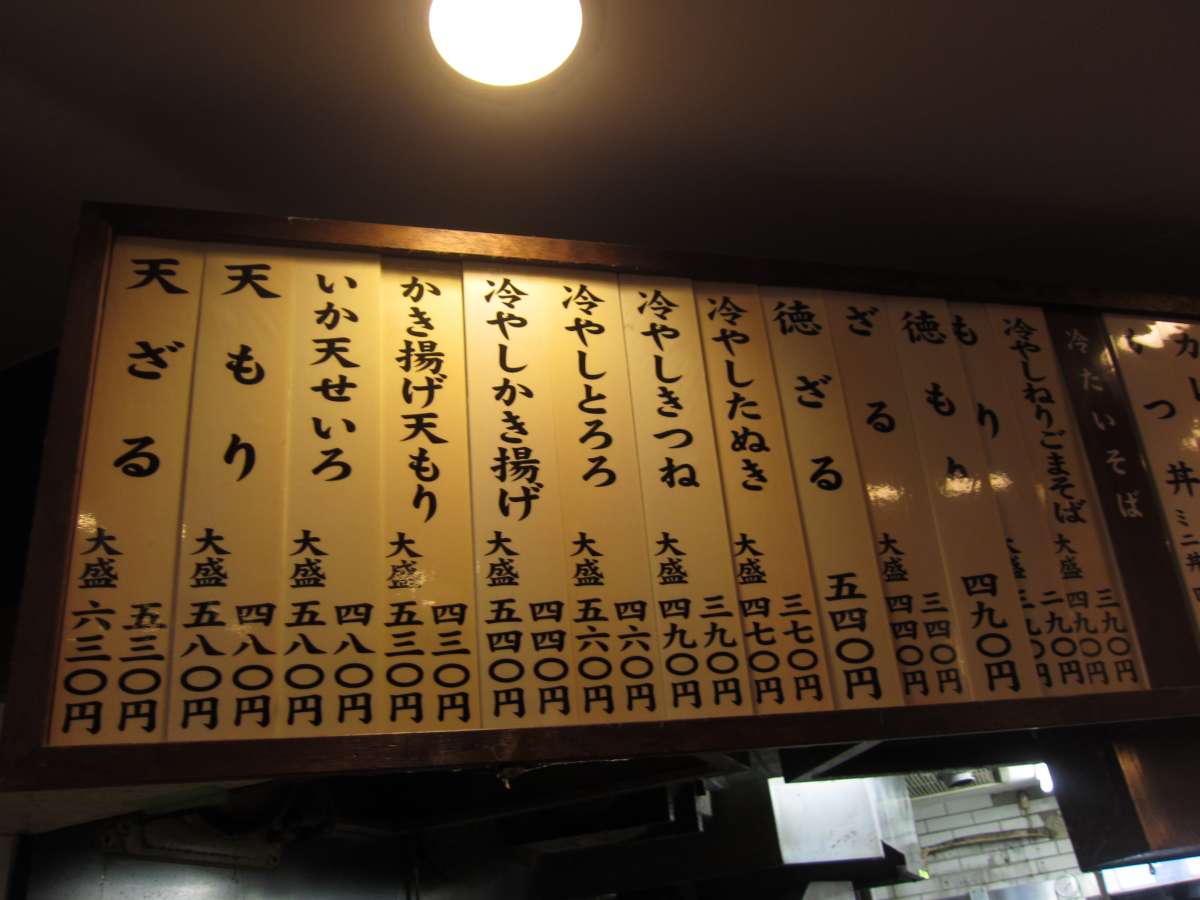 冷たいそば
冷やしねりごまそば
三九〇円
大盛 四九〇円
もり
二九〇円
徳もり
四九〇円
ざる
三四〇円
大盛 四四〇円
徳ざる
五四〇円
冷やしたぬき
三七〇円
大盛 四七〇円
冷やしきつね
三九〇円
大盛 四九〇円
冷やしとろろ
四六〇円
大盛 五六〇円
冷やしかき揚げ
四四〇円
大盛 五四〇円
かき揚げ天もり
四三〇円
大盛 五三〇円
いか天せいろ
四八〇円
大盛 五八〇円
天もり
四八〇円
大盛 五八〇円
天ざる
五三〇円
大盛 六三〇円